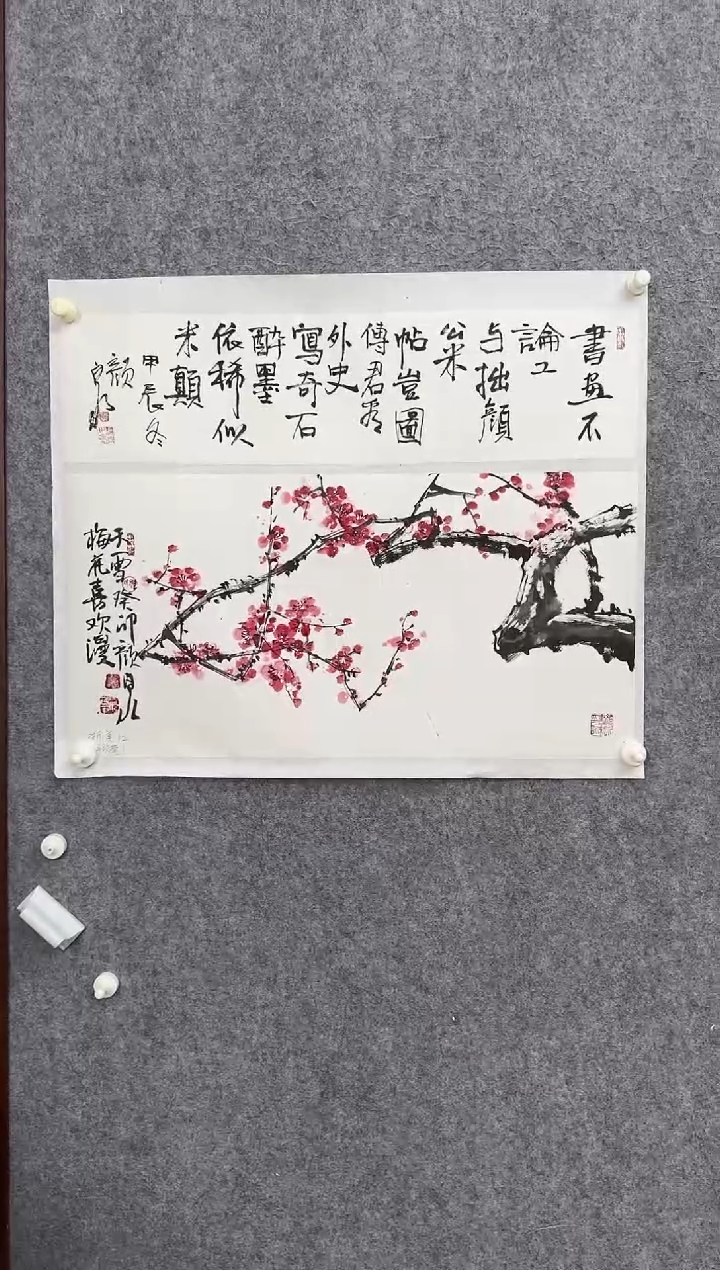 書畫不
論工
与拙顏
公米
帖豈圖
傳君看
外史
寫奇石
醉墨
依稀似
米顛
甲辰冬
顏
天雪癸卯顏
梅花喜欢漫